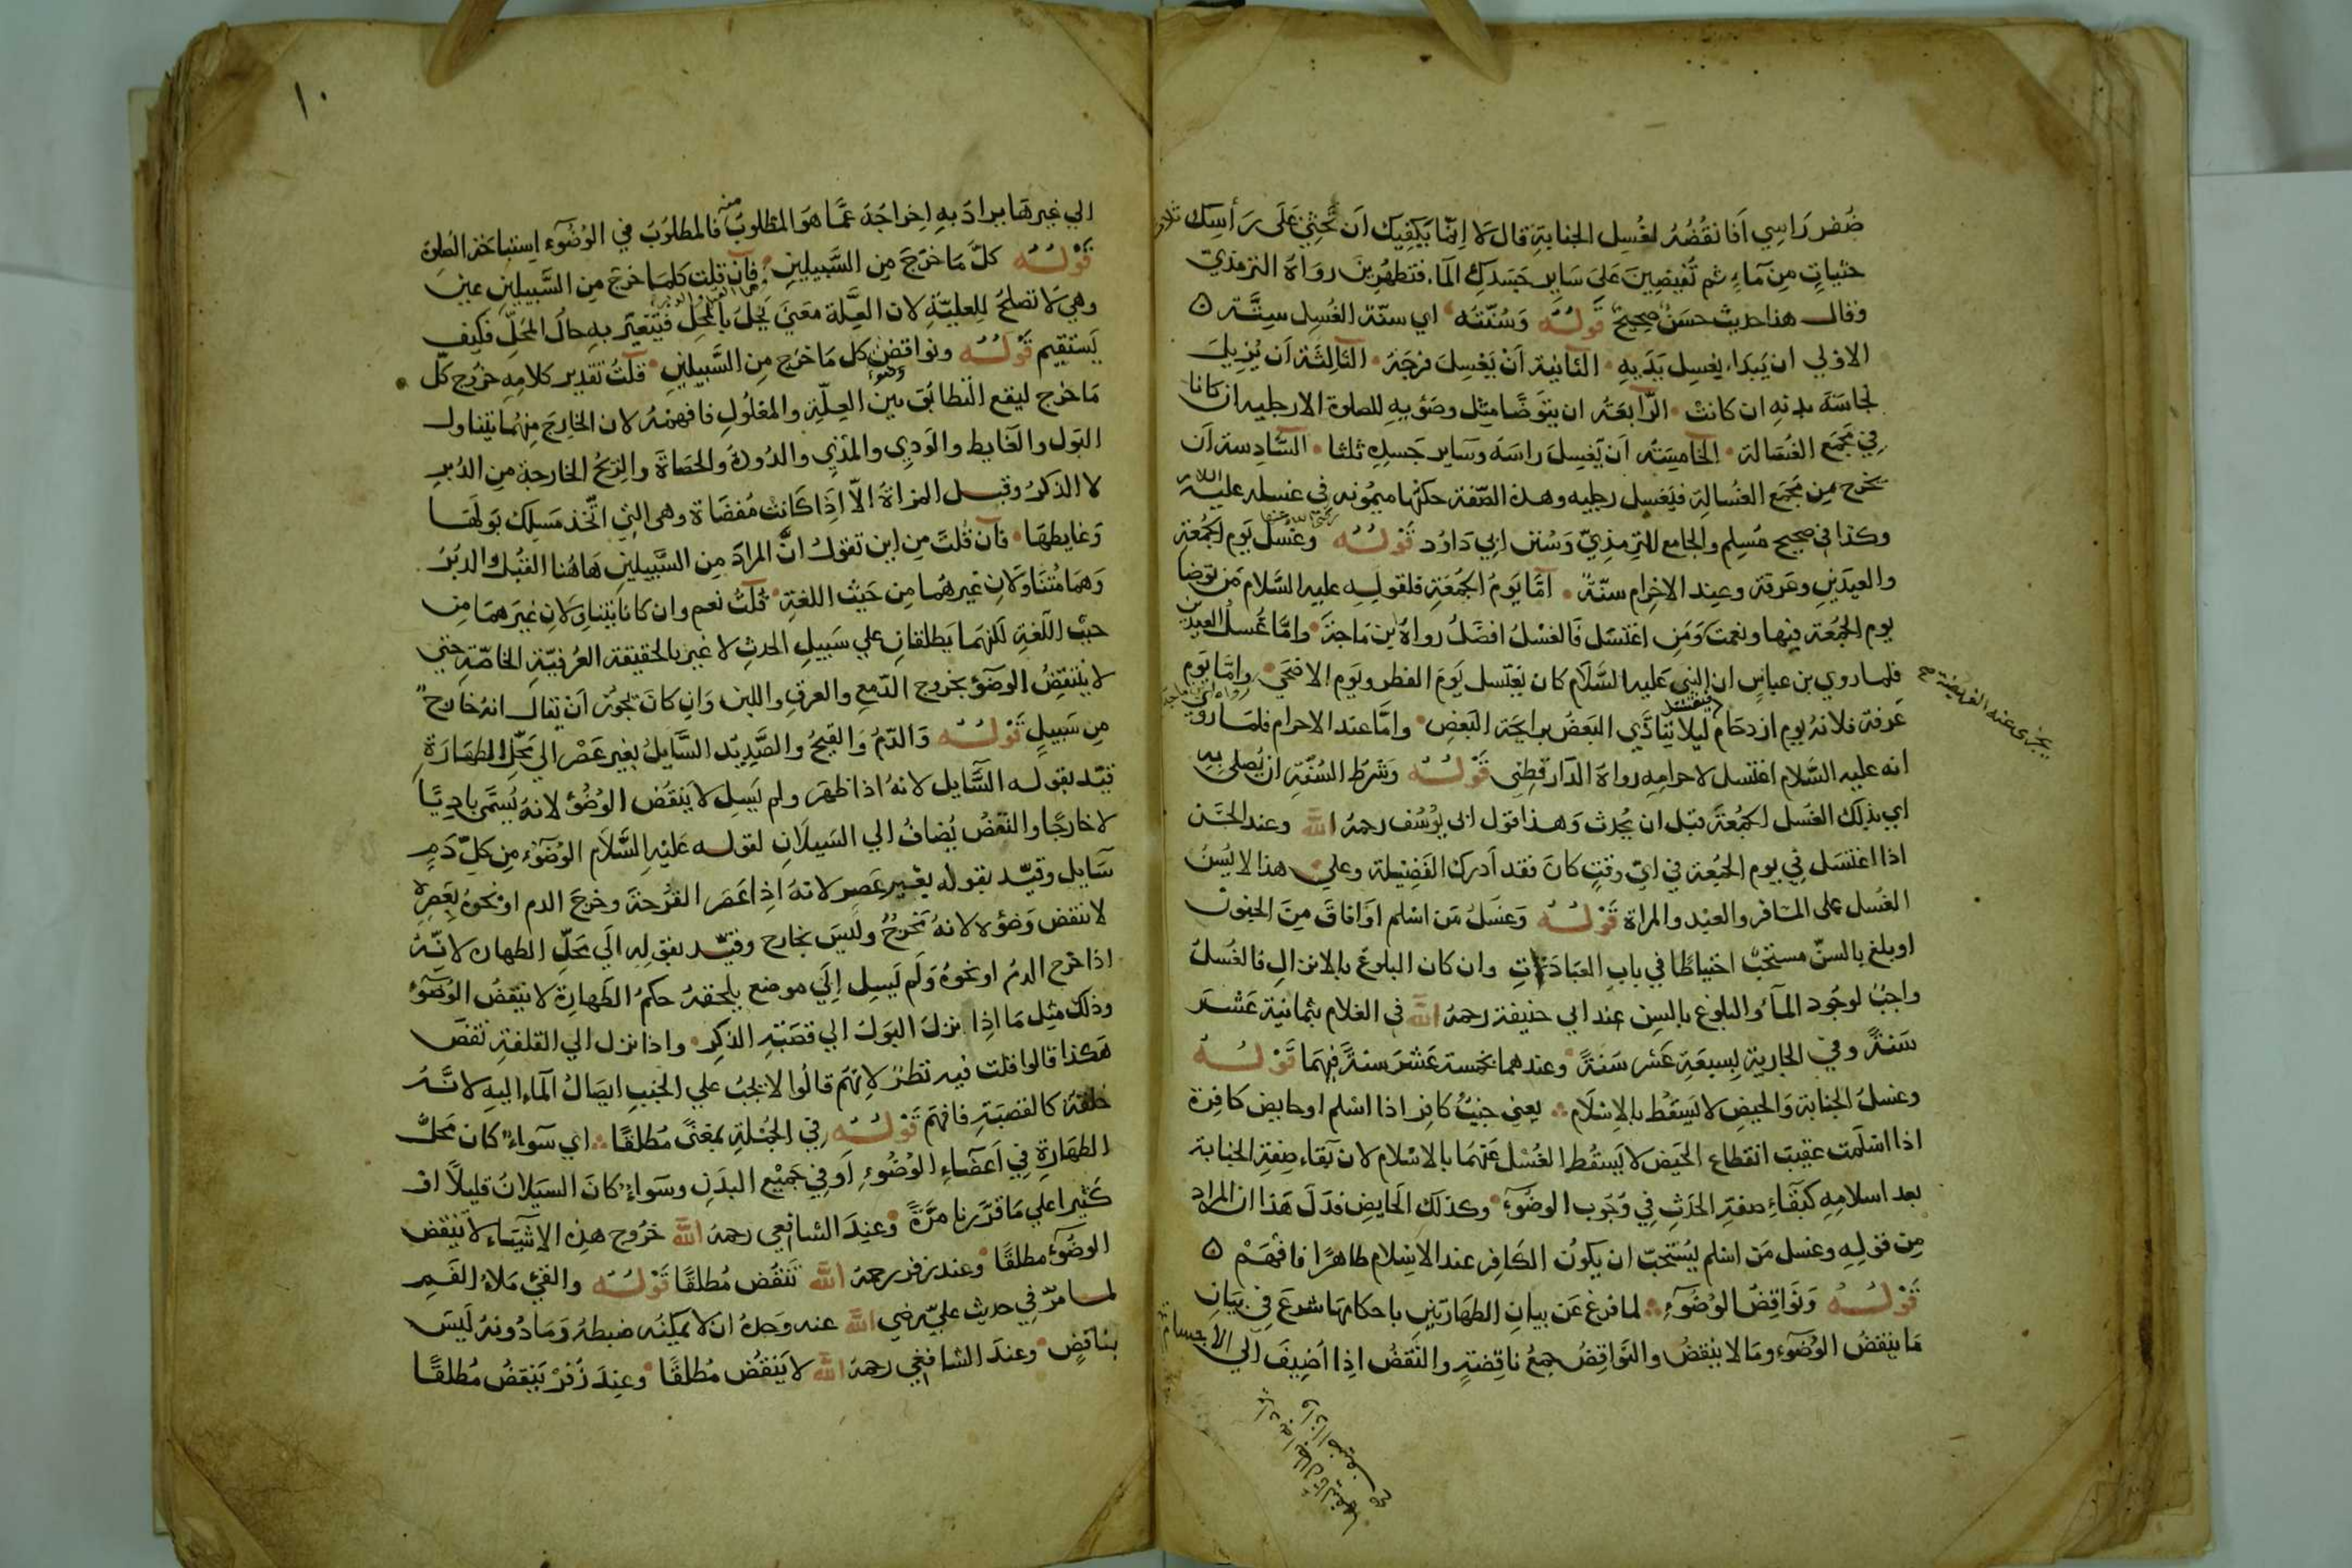 ضُفر رَاسِي اَفانقُضُهُ لغُسِل الجنابة قال لا اِنَّما يَكفِيك اَن تحْثِيْ عَلَى رَأسِك ثلاث
حثياتٍ مِن مَاءٍ ثم تُفيضِينَ عَلىَ سَايرِ جَسَدِكِ المآء فتطهُرِينَ روَاهُ الترمذيّ
وقال هذا حديث حسَنٌ صحِيح قولُهُ وَسُنّتُه اي سنّة الغُسِل سِتّة
الاولي ان يَبدَاء يغسِل يَدَيهِ الثانية اَنْ يَغْسِلَ فرجَهُ الثّالِثَة اَن يُزِيلَ
نجاسَةَ بدنهِ ان كانت الرّابعَةُ ان يتوَضَّا مثِل وضوُيهِ للصلوة الارجليه ان كانا
في مَجْمَع الغُسالة الخامِسَتُه اَن يَغسِلَ راسَهُ وسَاير جَسدِهِ ثلثا السَّادِسة اَن
يخرج مِن مَجمَع الغُسالةِ فيَغسِل رجليه وهذه الصّفة حكتْها ميمُونه في غسله عليه السلام
وكذا في صحيح مُسلِم والجامع للتِرمِذِيّ وَسُنن ابي دَاوُد قَوْلُهُ وغُسْل يَوم الجُمُعَةِ
والعِيدَينِ وعَرفة وعند الاحِرام سنّةٌ امّا يَومُ الجُمُعَةِ فلقولِهِ عليه السَّلام مَن توضا
يوم الجُمُعَة فبها ونعمت وَمَنِ اغتسَل فَالغسْلُ افضَلُ رواهُ ابن مَاجَة وامّا غُسلُ العِيدَين
فلما روي بن عباسٍ ان النبيَ عَليهِ السَّلَام كان يَغتَسل يَومَ الفطر ويَوم الاضحَى وامّا يَوم
رواه ابن ماجة
عَرفة فلانهُ يوم ازدحَام فيغتسل ليلا يَتاذّي البَعضُ برايحَة البَعضِ وامَّا عند الاحرام فلمَا روي
انه عليه السَّلام اغتسل لاحرامِهِ رواهُ الدّارقطني قَوْلُهُ وَشرط السُنّةِ ان يُصلى بهِ
اي بذلك الغسل الجُمُعَةَ قبل ان يُحدث وَهذا قول ابى يُوسُف رحمهُ اللّه وعند الحسَن
اذا اغتسَل في يوم الجُمُعة في ايّ وقتٍ كانَ فقد اَدرك الفَضِيْلة وعلي هذا لا يُسنُّ
الغُسل على المسَافر والعبْد والمراة قَوْلُهُ وَغسَلُ مَن اسْلم اَوَافاقَ مِنَ الجنون
او بلغ بالسنّ مستحَبٌّ احتياطًا في بابِ العبَادَاتِ وان كان البلوغ بالانزال فالغسُلُ
واجبٌ لوجُود المآءِ والبلوغ بالسِن عند ابي حَنيفَة رحمهُ اللّه في الغلام بثمانية عَشر
سَنةً وفي الجارية بِسبعَةِ عَشر سَنةً وعندهما بخمسة عَشرَ سنةً فيهَما قَوْلُهُ
وغسلُ الجنابة وَالحيض لا يَسقُط بالاسْلَام يعني جنبُ كافر اذا اسْلم او حايض كافرة
اذا اسْلَمت عقيب انقطاع الحَيض لا يَسقُط الغُسْل عَنهُما بالاسْلام لان بَقاء صِفةِ الجنابة
بعد اسلامِهِ كبَقاءِ صفةِ الحدَثِ في وجُوب الوضوء وكذلك الحَايض فدَل هَذا ان المراد
مِن قولِهِ وغسل مَن اسْلم يُستحَبّ ان يكونُ الكَافر عند الاسْلام طاهرًا فافهَمْ
قَوْلُهُ وَنَوَاقِضُ الوُضوءِ لما فرغ عَن بيانِ الطهَارتينِ باحكامِهَا شرعَ في بيَانِ
مَا ينقضُ الوُضوء ومَا لا ينقضُ والنّوَاقِضُ جمعُ ناقِضةٍ والنقضُ اِذا اُضِيفَ الي الاجسام
يجزى عنه الفريضة صح
١٠
الي غيرهَا يرادُ بهِ اِخراجهُ عمَّا هوَ المطلوبُ منه فالمطلوُبُ في الوُضُوءِ استباحَة الصَلوة
قَوْلُهُ كلّ مَا خرَجَ مِن السَّبيلينِ فاِن قلت كلمَا خرجَ مِن السَّبيلينِ عين
وهي لا تصلحُ للعليّةِ لان العِلّة معَنيً يَحِلُ بالمحَلِّ فيَتغيَّر بهِ حالُ المحَلّ فكيف
يَستقيم قَوْلُهُ ونواقض وضوء كل مَا خرَج مِن السَّبيلينِ قلتُ تقدير كلامِه خرُوج كلّ
مَا خرَج ليقع التّطابُق بين العِلّةِ والمعلُولِ فافهمهُ لان الخَارجَ مِنهُما يتناول
البَول والغَايط والوَدِي والمَذي والدُودة والحَصَاةَ والرّيحُ الخارجة مِن الدُبرِ
لا الذكرُ وقبل المراةُ الاّ اِذَا كَانت مُفضَاة وهى التي اتّخذ مَسلك بَولَها
وَغايطهَا فاِن قُلتَ مِن اين تقولُ انَّ المرادَ مِن السَّبيلينِ هَاهُنا القُبُل والدبُرُ
وَهمَا مُتنَاوَلانِ غيرهُما مِن حَيث اللغةِ قلتُ نعم وان كانا يتناوَلانِ غيرَ همَا مِن
حيث اللّغةِ لكنهمَا يَطلقانِ علي سَبيلِ الحدثِ لا غير بالحقيقة العرُفيّةِ الخاصّةِ حتي
لا ينتقِضُ الوضوُء بخروج الدّمع والعرقِ واللبن وَانِ كانَ يجوزُ اَنْ يقال انهُ خارجٌ
مِن سَبيلٍ قَوْلُهُ وَالدّمُ وَالقيحُ والصَّدِيد السَّايلُ بغير عَصْرٍ الي محَلِّ الطهَارَةِ
قيّد بقوله السَّايل لانهُ اذا ظهرَ ولم يَسِل لا يَنقُض الوُضُوء لانهُ يُسمّى باديًا
لا خارجًا والنّقضُ يُضافُ الي السَيلَانِ لقوله عَليهِ السَّلَام الوُضُوءُ مِن كلّ دَمٍ
سَايل وقيّد بقوله بغير عَصِرٍ لانهُ اذِا عَصَر القُرْحَة وخرجَ الدم او نحوُهُ بعَصرٍه
لا تنقض وَضوُءه لانهُ مُخرَجٌ وليسَ بخارج وقيّد بقولِهِ الَي مَحَلّ الطهارة لانّهُ
اذا خرَج الدمُ او نحوهُ وَلَم يَسِل اِلَي موضع يلحقهُ حكمُ الطَهارةِ لا ينقضُ الوُضوء
وذلك مثِل مَا اذِا نزلَ البَول الي قصَبةِ الذكِرِ واذا نزل الي القلفة نقضَ
هَكذا قالوا قلت فيه نَظرٌ لانهُم قالُوا لا يجَبُ علي الجنبِ ايصَالُ المآءِ اليهِ لانّهُ
خلقة كالقصَبَةِ فافهَم قَوْلُهُ في الجُملةِ بمعَنًى مُطلقًا اي سَواءٌ كان محَلُّ
الطهَارةِ في اَعضَاءِ الوُضُوءِ اَو في جَميْع البدَنِ وسَواءٌ كانَ السيَلانُ قليلًا او
كَثيرا علي مَا قدّرنا مرَّةً وعنِدَ الشافعي رحمهُ اللّه خرُوج هذِهِ الاشيَاء لا يَنقض
الوضُوءَ مطلقًا وعند زفر رحمهُ اللّه تَنقُض مُطلقًا قَوْلُهُ والقئ مَلاءُ الفَمِ
لما مرّ في حديث عليّ رضي اللّه عنه وَحدّهُ ان لا يمكِنُه ضبطهُ وَمَا دُونهُ لَيسَ
بناقضٍ وعندَ الشافعِي رحمهُ اللّه لا يَنقُض مُطلقًا وعنِدَ زُفَرْ يَنقضُ مُطلقًا